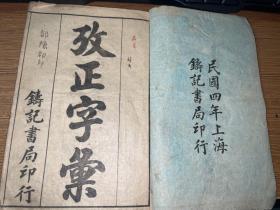 民國四年上海
鑄記書局印行
攷正字彙
鑄記書局印行